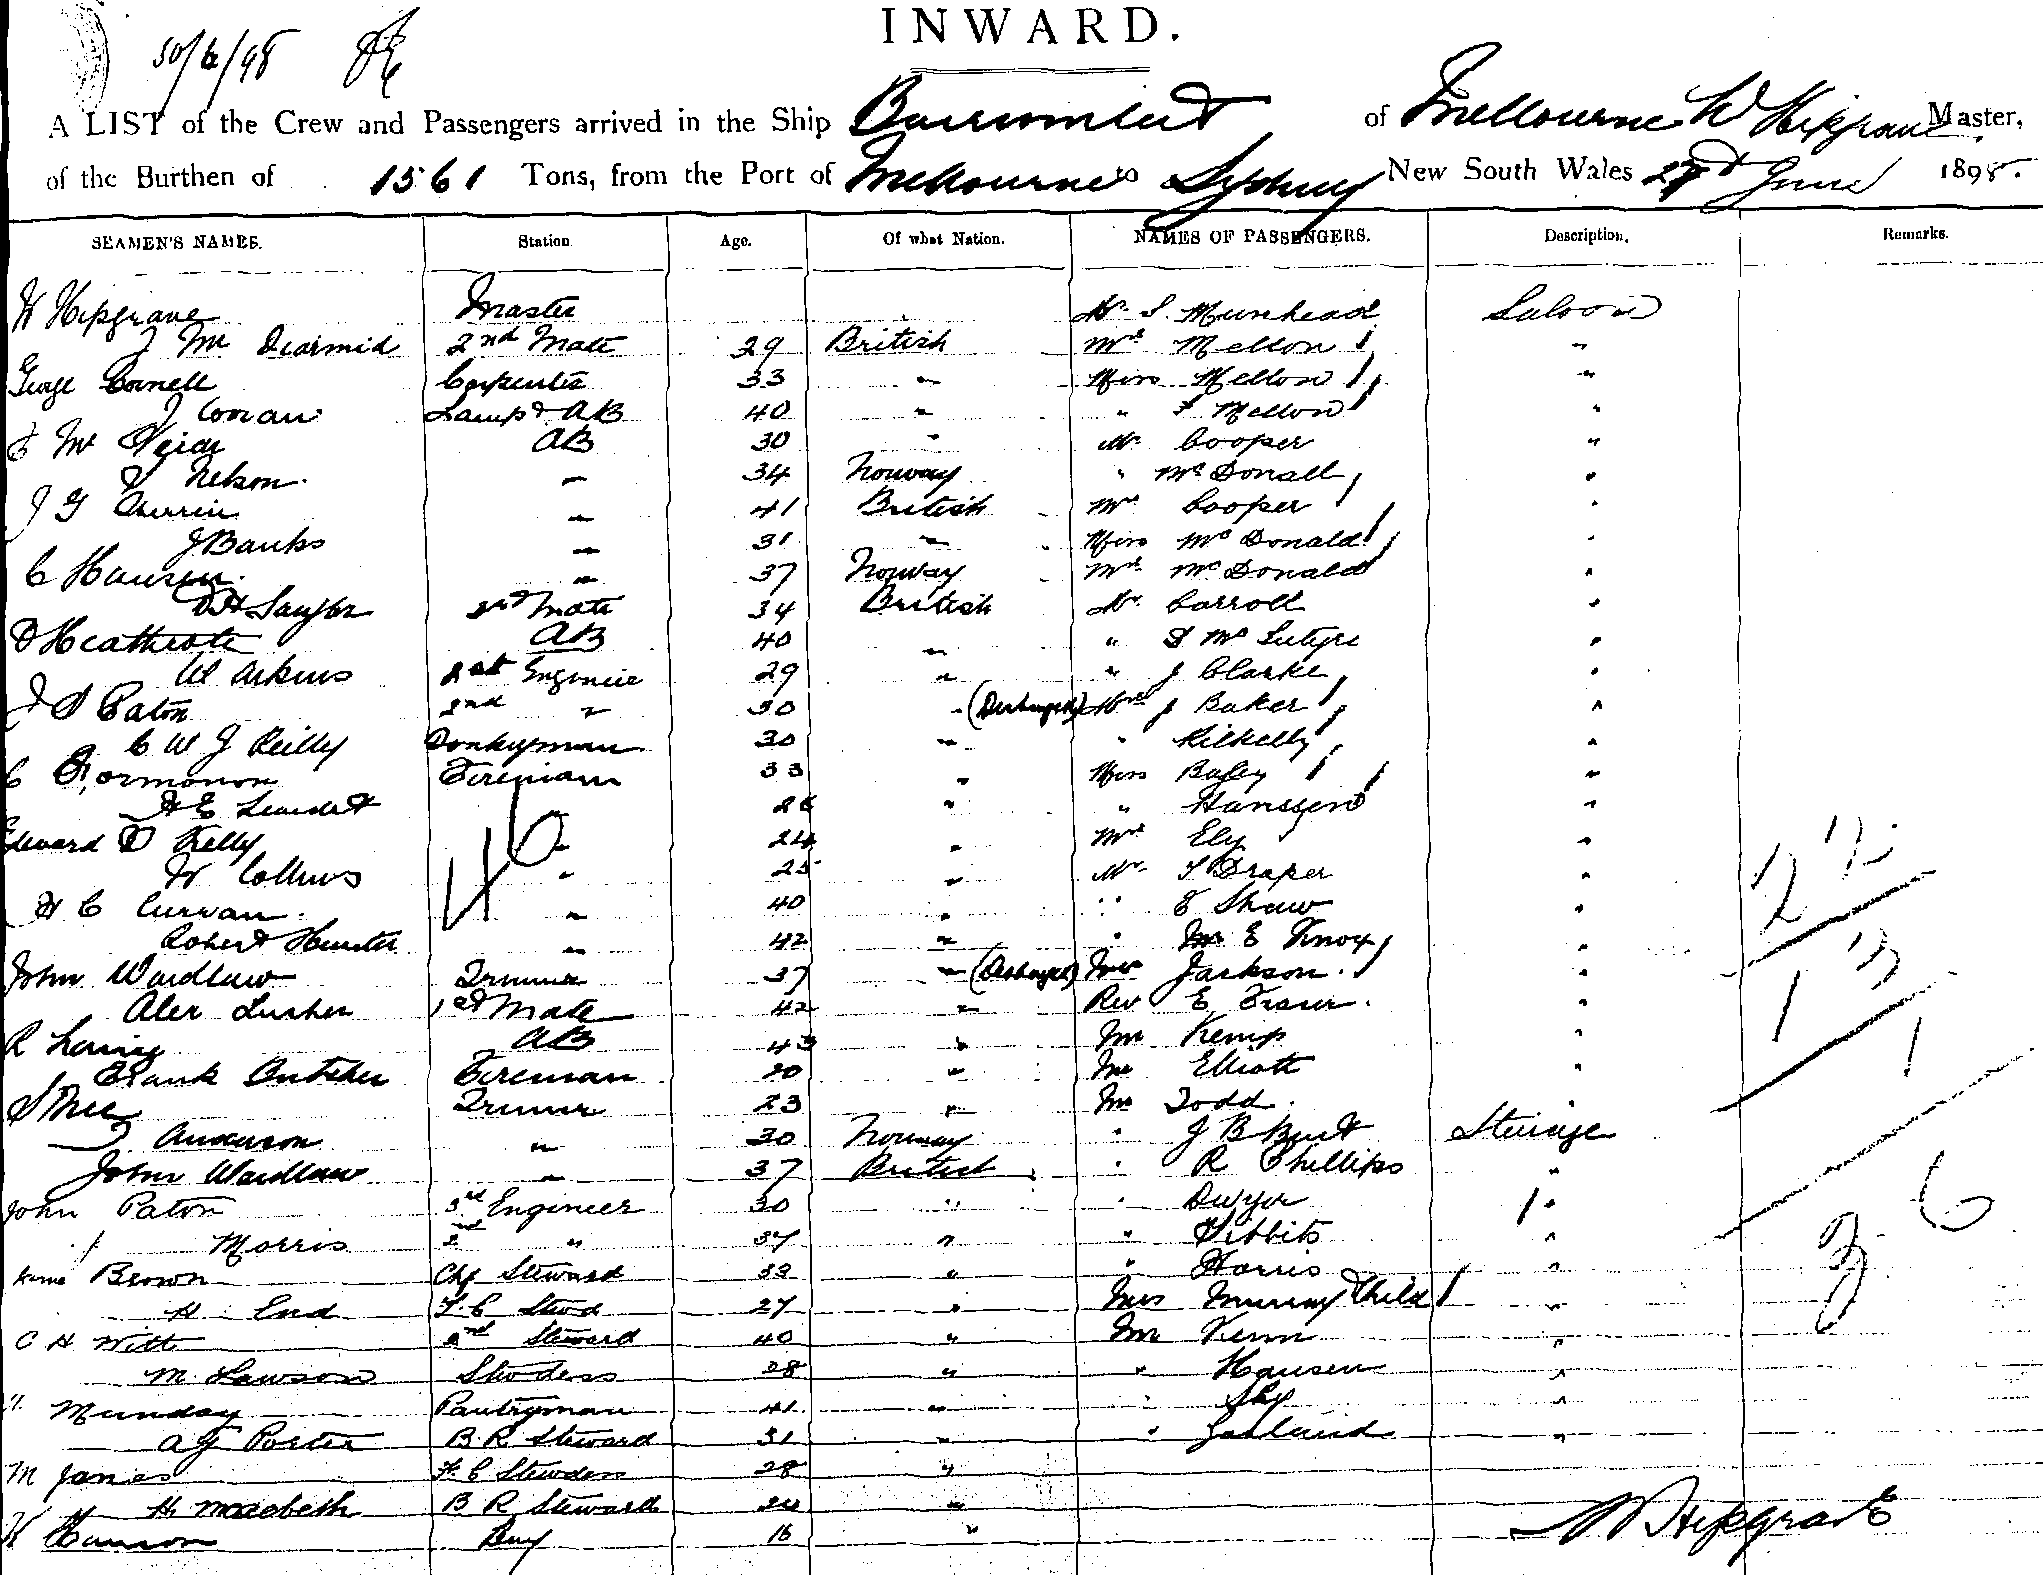 30/6/98
INWARD.
A LIST of the Crew and Passengers arrived in the Ship Burrumbeet of Melbourne W Hipgrave Master,
of the Burthen of 1561 Tons, from the Port of Melbourne to Sydney New South Wales June 1898.
SEAMEN'S NAMES. Station. Age. Of what Nation. NAMES OF PASSENGERS. Description. Remarks.
W Hipgrave Master Mr. S. Muirhead Saloon
J Mc Diarmid 2nd Mate 29 British Mrs Mellon "
George Cornell Carpenter 33 " Miss Mellon "
J Conan Lamps & AB 40 " " F Mellon "
AB 30 " Mr Cooper "
Nelson " 34 Norway " McDonall "
J G " 41 British Mrs Cooper "
J Banks " 31 " Miss McDonald "
C Hansen " 37 Norway Mrs McDonald "
Mate 34 British Mr. Carroll "
D Heathcote AB 40 " " McIntyre "
W Arkins Engineer 29 " " J Clarke "
Paton 2nd " 30 " (Discharged) J Baker "
C W J Reilly Donkeyman 30 " " Kilkelly "
C Fireman 33 " Miss "
H E " " Hanssen "
Edward D Kelly " 24 " Mrs Ely "
W Collins " 25 " Mr. T Draper "
H C Curran " 40 " " E Shaw "
Robert Hunter " 42 " " E Knox "
John Wardlaw Trimmer 37 " (Discharged) Mrs Jackson "
Alex Lusher 1st Mate 42 " Rev E Fraser "
R AB 43 " Mr Kemp "
Frank Butcher Fireman 20 " Mr Elliott "
Trimmer 23 " Mr Todd "
Anderson " 30 Norway " J B Burt Steerage
John Wardlaw " 37 British " R Phillips "
John Paton 3rd Engineer 30 " " Dwyer "
Morris 2nd " 34 " " Tibbits "
Brown Chf Steward 33 " " Harris "
H End F.C. Stwd 27 " Mrs Murray Child "
C H Witt 2nd Steward 40 " Mr "
M Lawson Stwdess 28 " " Hansen "
Munday Pantryman 41 " " "
A G Porter B.R. Steward 31 " " "
M James F.C. Stewdess 28 "
H Macbeth B R Steward "
Hanson Boy 16 "
40
22
13
1
36
W Hipgrave